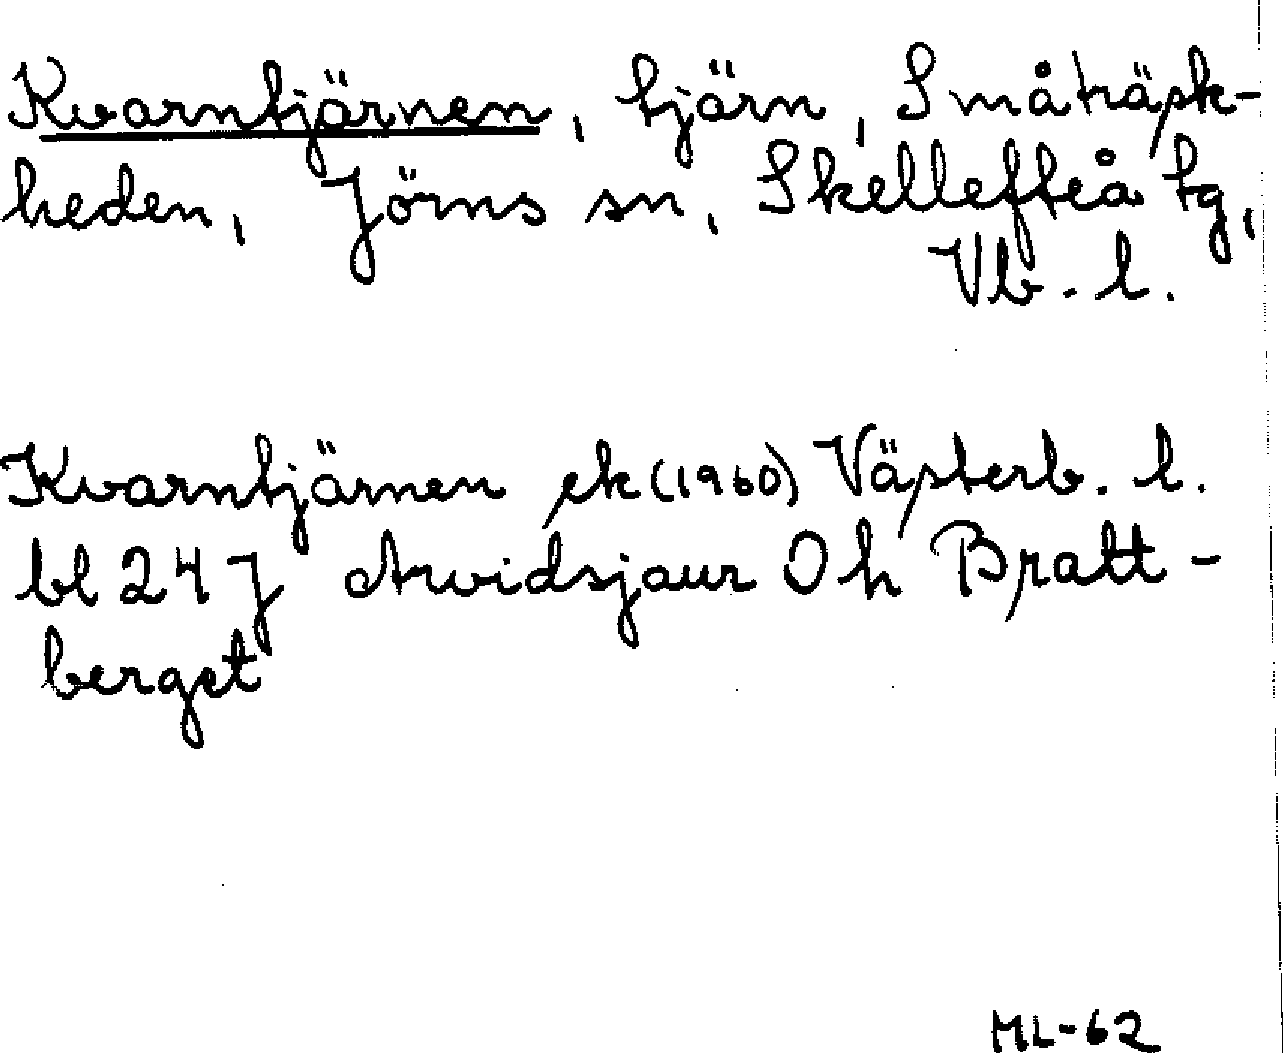 Kvarntjärnen, tjärn, Småträsk-
heden, Jörns sn, Skellefteå tg,
Vb. l.
Kvarntjärnen ek (1960) Västerb. l.
bl 24 J Arvidsjaur O h Bratt-
berget
ML-62